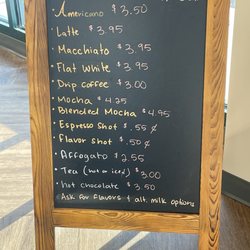 Americano $3.50
Latte $3.95
Macchiato $3.95
Flat White $3.95
Drip Coffee $3.00
Mocha $4.25
Blended Mocha $4.95
Espresso Shot $.55¢
Flavor Shot $.50¢
Affogato $2.55
Tea (hot or iced) $3.00
Hot chocolate $3.50
Ask for flavors + alt. milk options